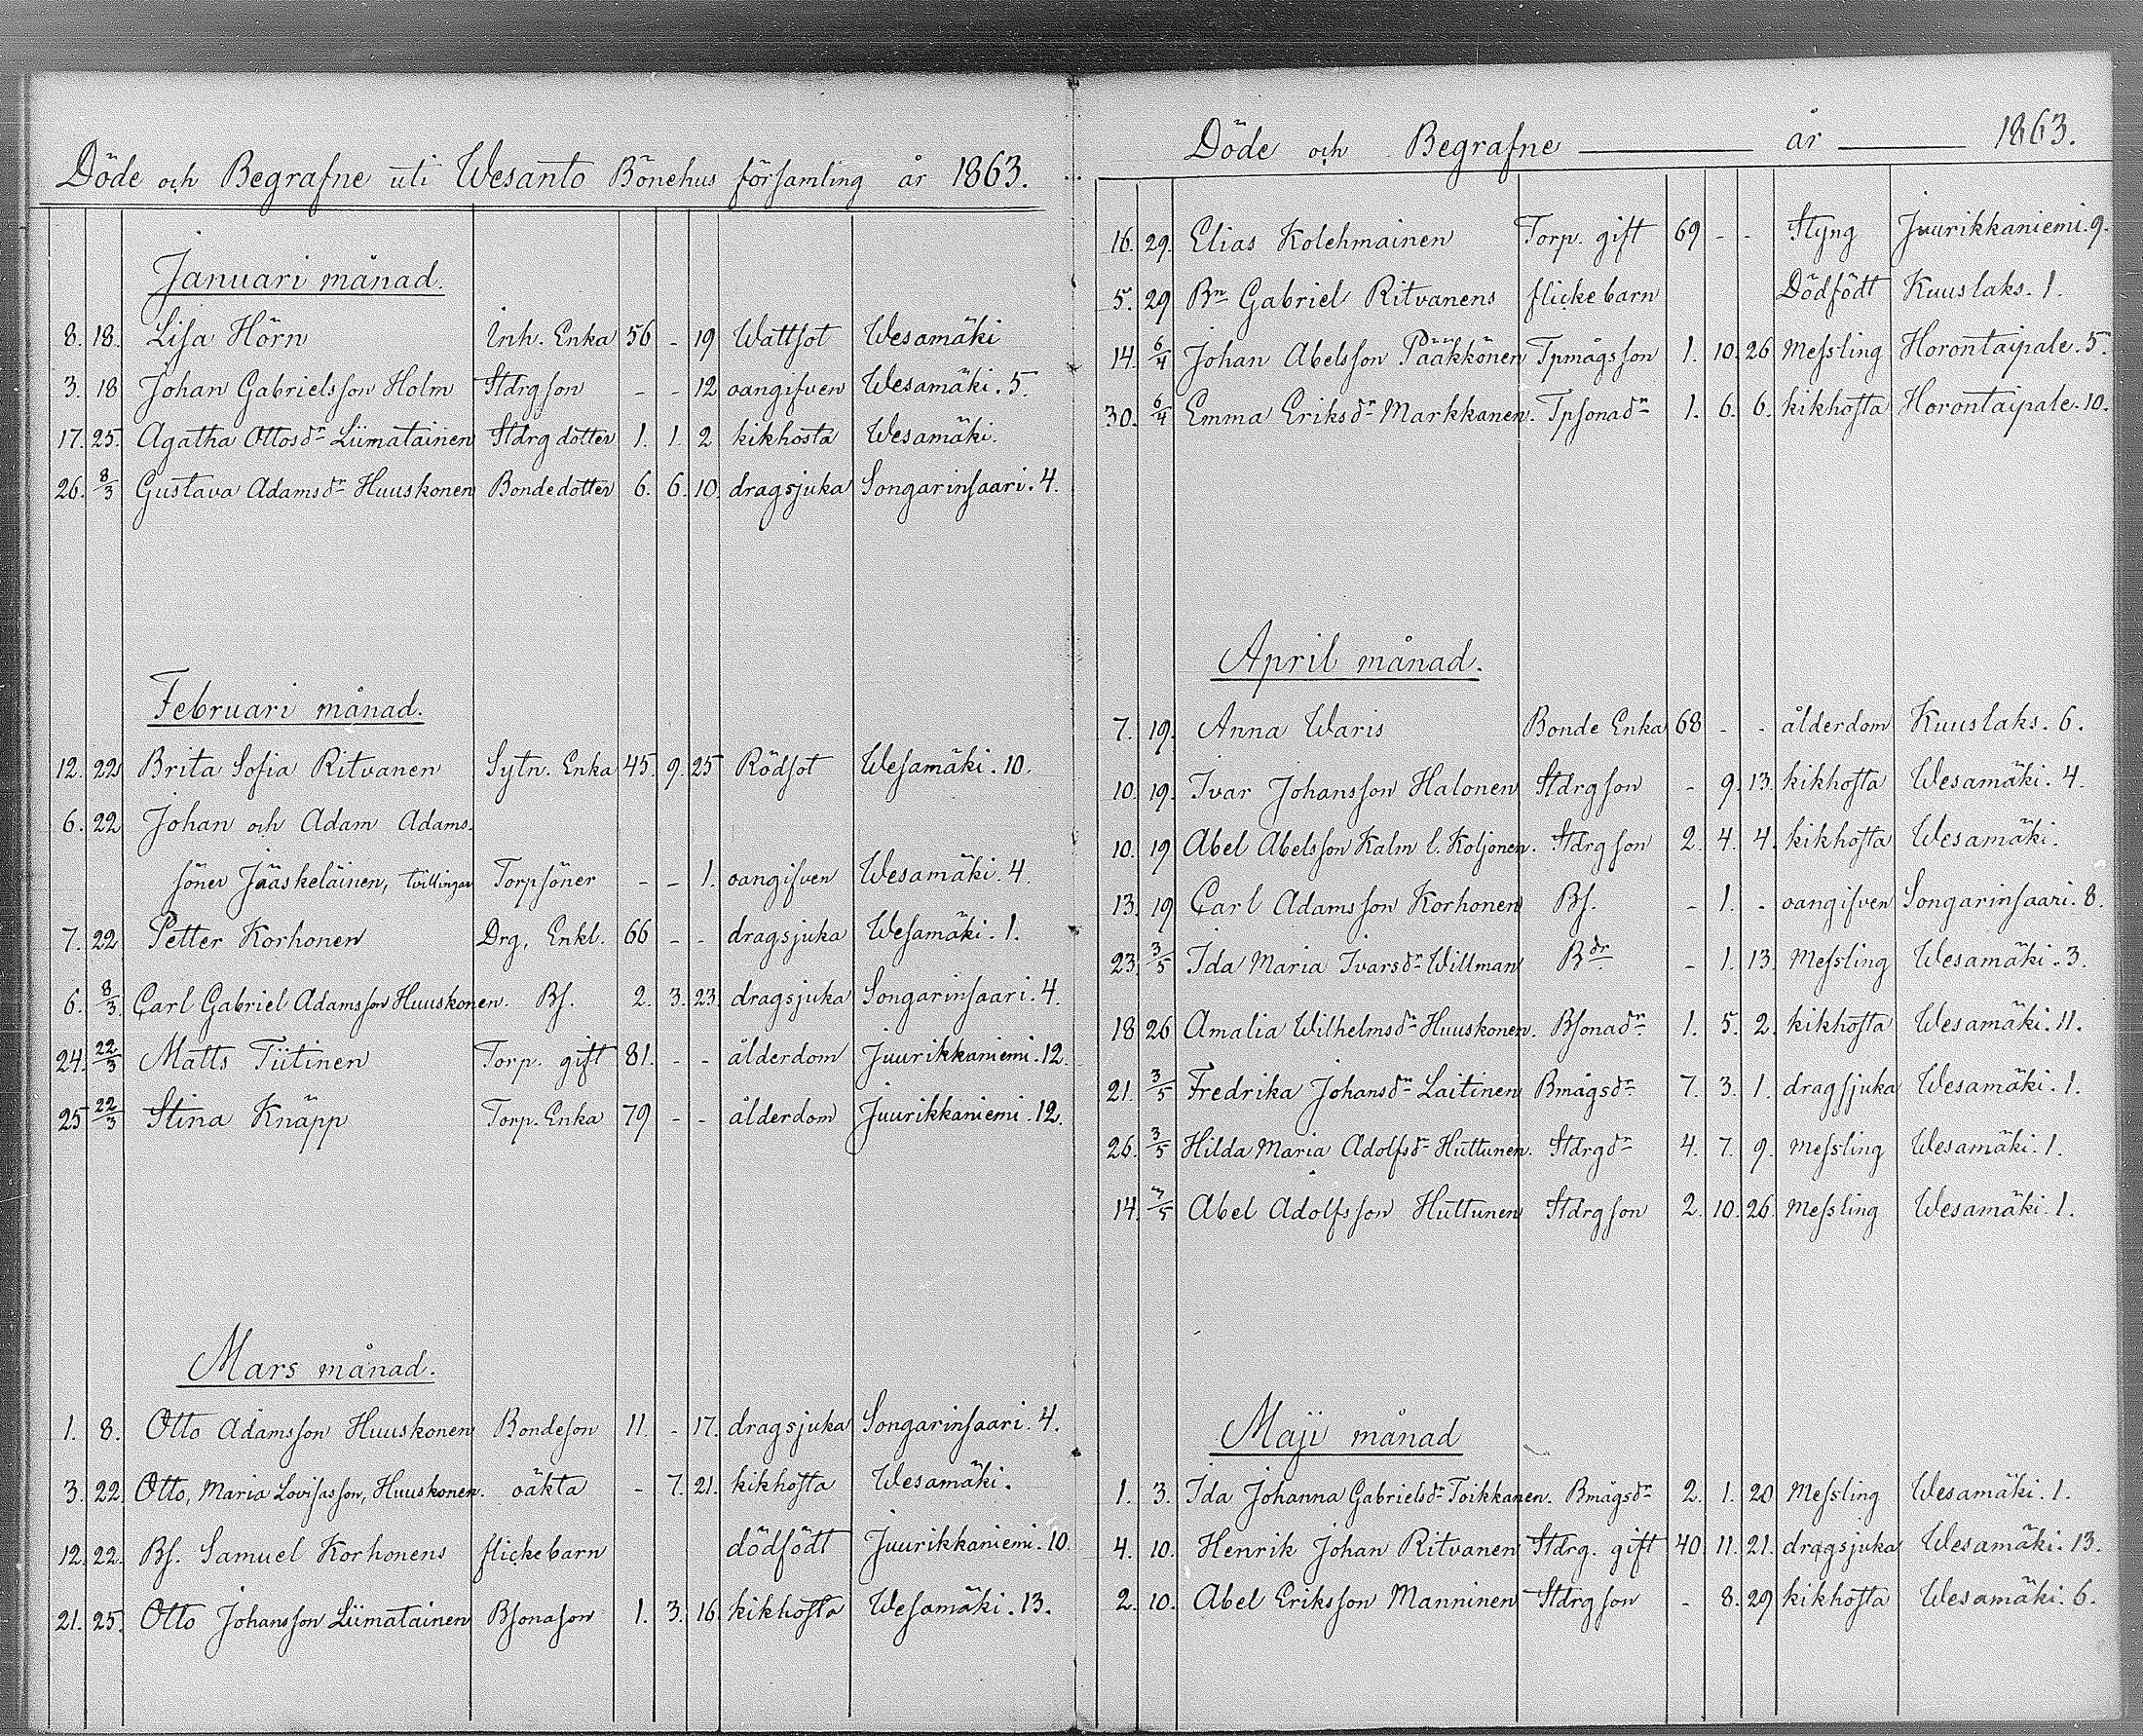 Döde och Begrafne uti Wesanto Bönehus församling år 1863.
Januari månad.
8. 18. Lisa Hörn Inh. Enka 56 - 19 Wattsot Wesamäki
3. 18 Johan Gabrielsson Holm Stdrgson - - 12 oangifven Wesamäki. 5.
17. 25. Agatha Ottosdr Liimatainen Stdrgdotter 1. 1. 2 kikhosta Wesamäki.
26. 8/3 Gustava Adamsdr Huuskonen Bondedotter 6. 6. 10. dragsjuka Songarinsaari. 4.
Februari månad.
12. 22 Brita Sofia Ritvanen Sytn. Enka 45. 9. 25 Rödsot Wesamäki. 10.
6. 22 Johan och Adam Adams-
söner Jääskeläinen, tvillingar Torpsöner - - 1. oangifven Wesamäki. 4.
7. 22 Petter Korhonen Drg. Enkl. 66 - - dragsjuka Wesamäki. 1.
6. 8/3. Carl Gabriel Adamsson Huuskonen. Bs. 2. 3. 23. dragsjuka Songarinsaari. 4.
24. 22/3 Matts Tiitinen Torp. gift 81. - - ålderdom Juurikkaniemi. 12.
25 22/3 Stina Knäpp Torp. Enka 79 - - ålderdom Juurikkaniemi. 12.
Mars månad.
1. 8. Otto Adamsson Huuskonen Bondeson 11. - 17. dragsjuka Songarinsaari. 4.
3. 22. Otto, Maria Lovisasson, Huuskonen. oäkta - 7. 21. kikhosta Wesamäki.
12. 22. Bs. Samuel Korhonens flickebarn dödfödt Juurikkaniemi. 10.
21. 25. Otto Johansson Liimatainen Bsonason 1. 3. 16. kikhosta Wesamäki. 13.
Döde och Begrafne år 1863.
16. 29. Elias Kolehmainen Torp. gift 69 - - Styng Juurikkaniemi. 9.
5. 29 Bn Gabriel Ritvanens flickebarn Dödfödt Kuuslaks. 1.
14. 6/4 Johan Abelsson Pääkkönen Tpmågsson 1. 10. 26 Messling Horontaipale. 5.
30. 6/4 Emma Eriksdr Markkanen. Tpsonadr 1. 6. 6. kikhosta Horontaipale. 10.
April månad.
7. 19. Anna Waris Bonde Enka 68 - - ålderdom Kuuslaks. 6.
10. 19. Ivar Johansson Halonen Stdrgson - 9. 13. kikhosta Wesamäki. 4.
10. 19 Abel Abelsson Kalm l. Koljonen. Stdrgson 2. 4. 4. kikhosta Wesamäki.
13. 19 Carl Adamsson Korhonen Bs. - 1. - oangifven Songarinsaari. 8.
23. 3/5 Ida Maria Ivarsdr Willman Bdr. - 1. 13. Messling Wesamäki. 3.
18 26 Amalia Wilhelmsdr Huuskonen. Bsonadr 1. 5. 2. kikhosta Wesamäki. 11.
21. 3/5 Fredrika Johansdr Laitinen Bmågsdr 7. 3. 1. dragsjuka Wesamäki. 1.
26. 3/5 Hilda Maria Adolfsdr Huttunen. Stdrgdr 4. 7. 9. Messling Wesamäki. 1.
14. 3/5 Abel Adolfsson Huttunen Stdrgson 2. 10. 26. Messling Wesamäki. 1.
Maji månad
1. 3. Ida Johanna Gabrielsdr Toikkanen. Bmågsdr 2. 1. 20 Messling Wesamäki. 1.
4. 10. Henrik Johan Ritvanen Stdrg. gift 40. 11. 21. dragsjuka Wesamäki. 13.
2. 10. Abel Eriksson Manninen Stdrgson - 8. 29 kikhosta Wesamäki. 6.